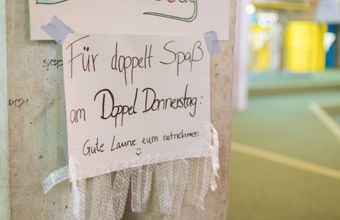 Für doppelt Spaß
am Doppel Donnerstag:
- Gute Laune zum mitnehmen